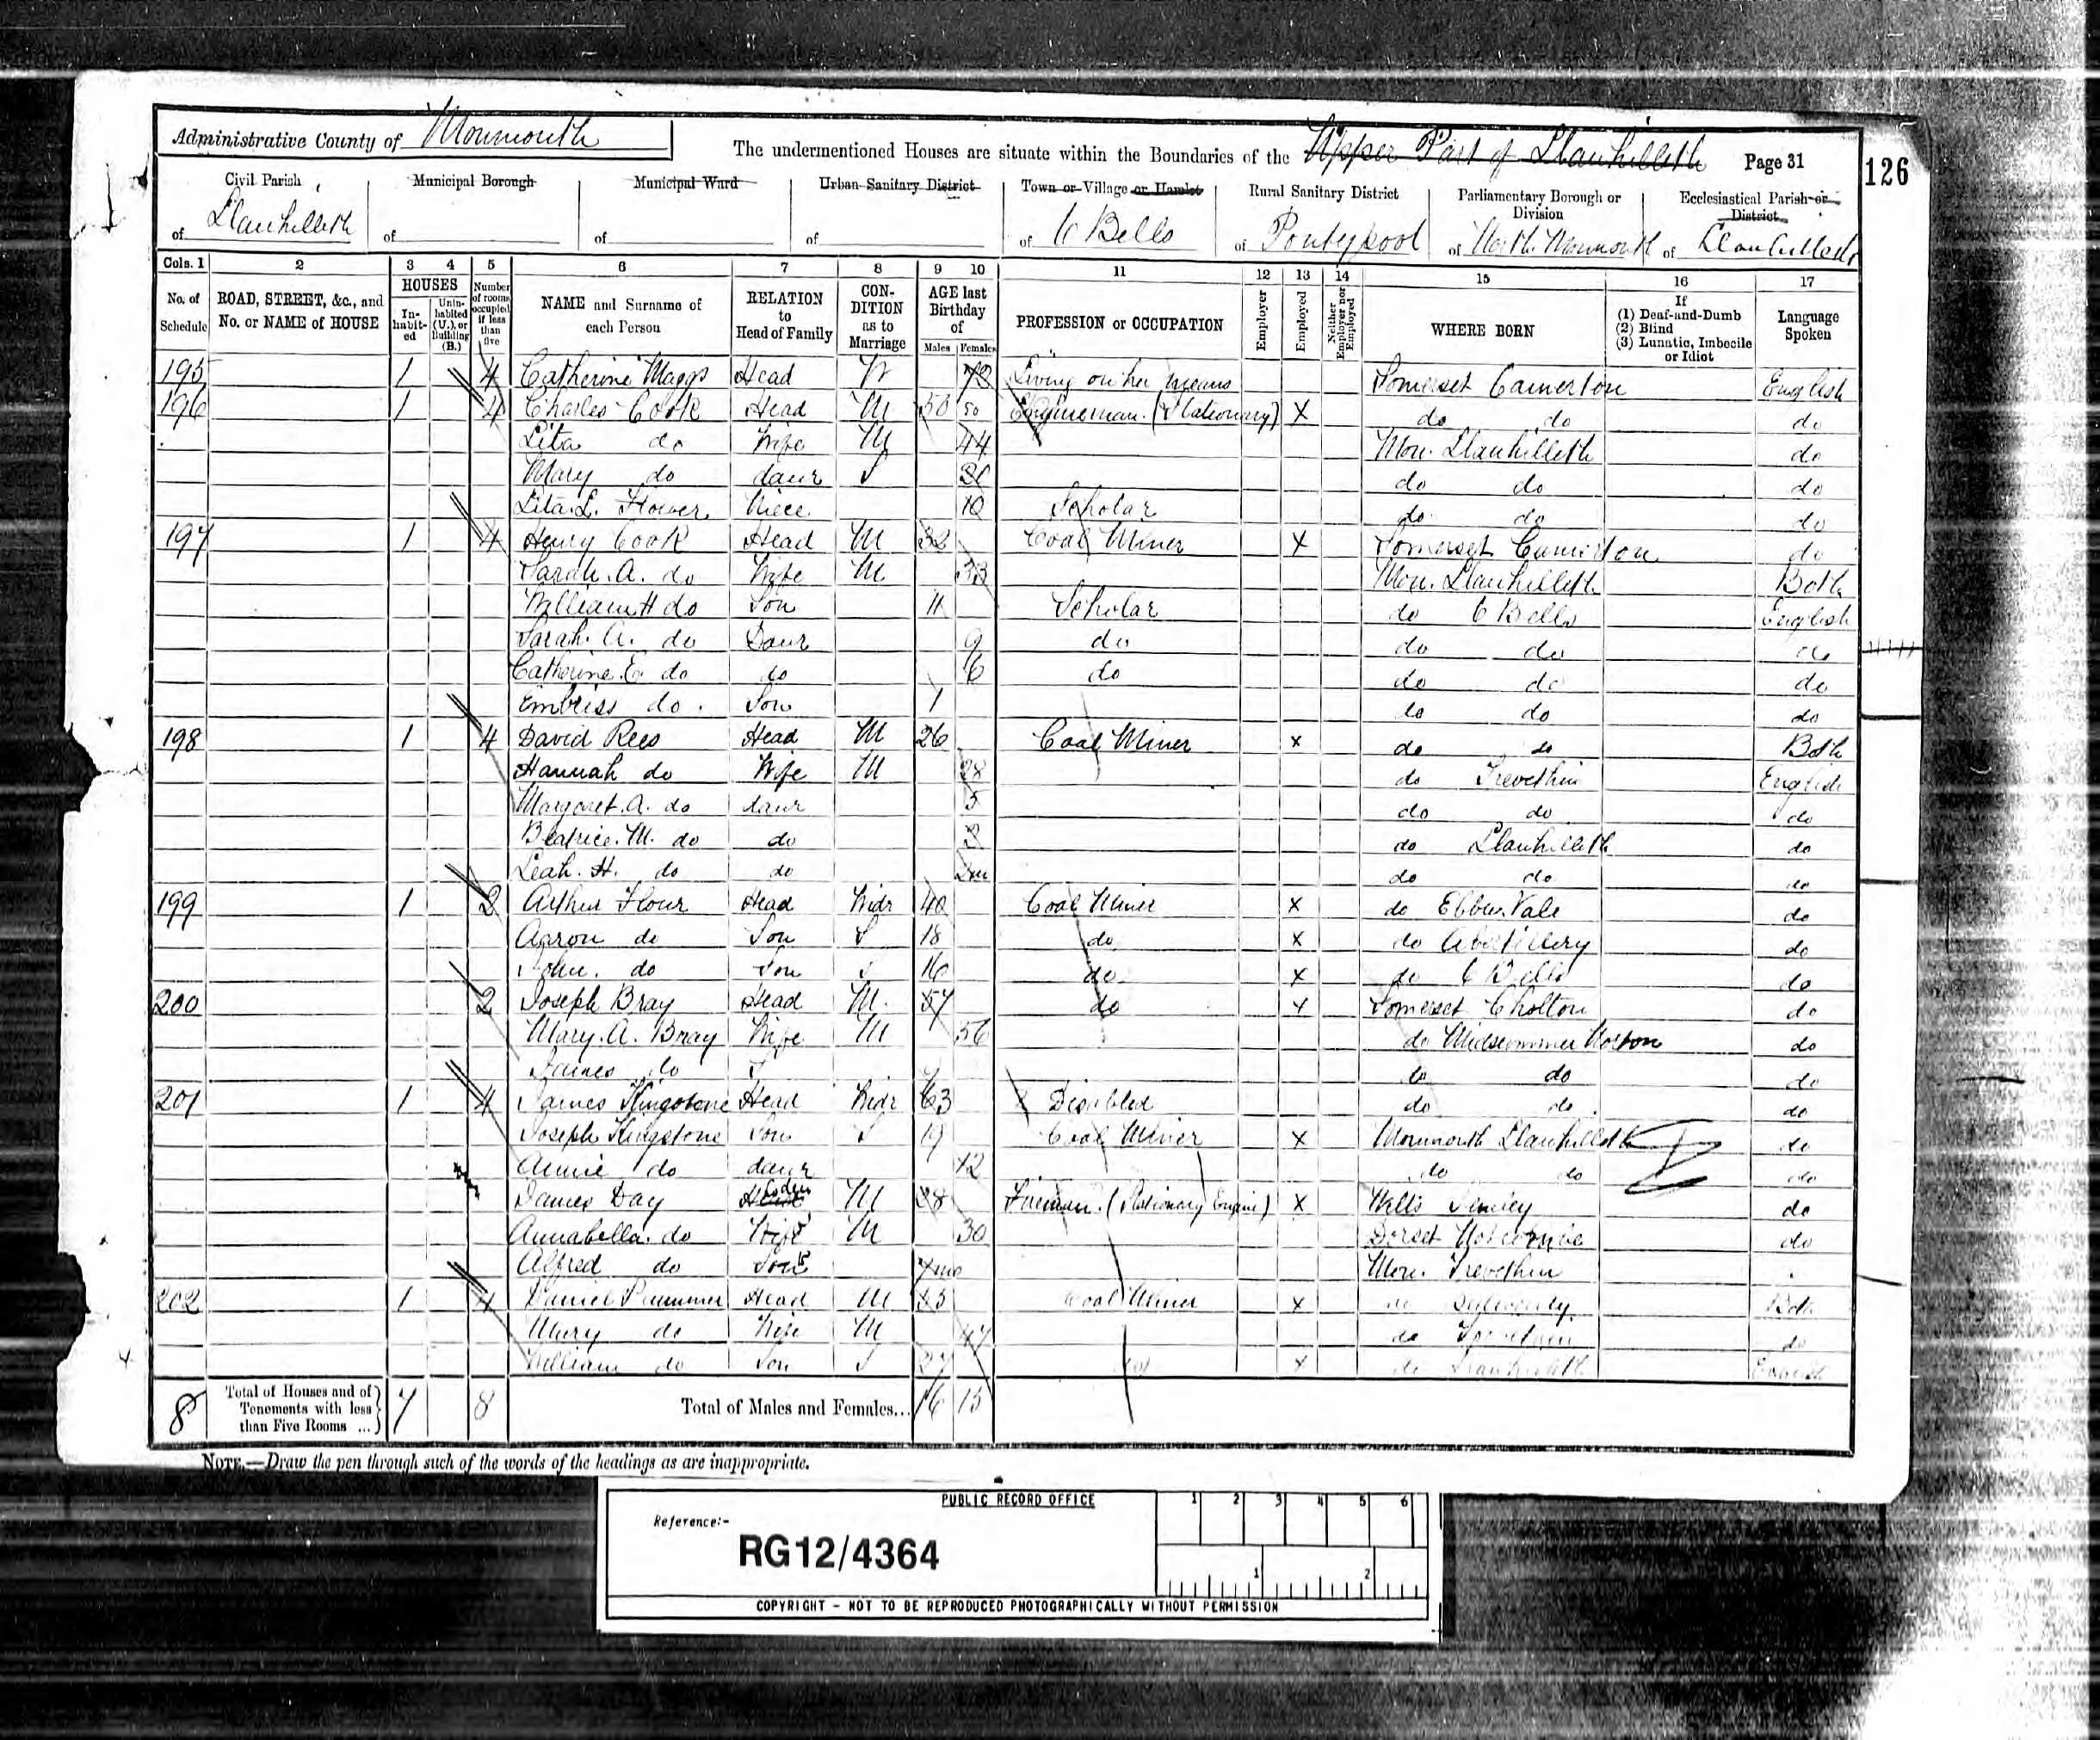 Administrative County of Monmouth
The undermentioned Houses are situate within the Boundaries of the Upper Part of Llanhilleth
Page 31
126
Civil Parish of Llanhilleth
Municipal Borough of
Municipal Ward of
Urban Sanitary District of
Town or Village or Hamlet of 6 Bells
Rural Sanitary District of Pontypool
Parliamentary Borough or Division of North Monmouth
Ecclesiastical Parish or District of Llanhilleth
Cols. 1 2 3 4 5 6 7 8 9 10 11 12 13 14 15 16 17
No. of Schedule
ROAD, STREET, &c., and No. or NAME of HOUSE
HOUSES
In-habit-ed
Unin-habited (U.), or Building (B.)
Number of rooms occupied if less than five
NAME and Surname of each Person
RELATION to Head of Family
CON-DITION as to Marriage
AGE last Birthday of
Males Females
PROFESSION or OCCUPATION
Employer
Employed
Neither Employer nor Employed
WHERE BORN
If (1) Deaf-and-Dumb (2) Blind (3) Lunatic, Imbecile or Idiot
Language Spoken
195 1 4 Catherine Maggs Head W 72 Living on her Means Somerset Camerton English
196 1 4 Charles Cook Head M 50 50 Engineman (Stationary) X do do do
Lita do Wife M 44 Mon. Llanhilleth do
Mary do daur S do do do
Lita L. Flower Niece 10 Scholar do do do
197 1 4 Henry Cook Head M 32 Coal Miner X Somerset Camerton do
Sarah. A. do Wife M 33 Mon. Llanhilleth Both
William H do Son 11 Scholar do 6 Bells English
Sarah. A. do Daur 9 do do do do
Catherine. E. do do 6 do do do do
do Son 1 do do do
198 1 4 David Rees Head M 26 Coal Miner X do do Both
Hannah do Wife M 28 do Trevethin English
Margaret. A. do daur 5 do do do
Beatrice. M. do do do Llanhilleth do
Leah. H. do do 2m do do do
199 1 2 Arthur Flour Head Widr 40 Coal Miner X do Ebbw Vale do
Aaron do Son S 18 do X do Abertillery do
John. do Son S 16 do X do 6 Bells do
200 2 Joseph Bray Head M. 57 do X Somerset do
Mary. A. Bray Wife M 56 do Midsommer Norton do
James do S do do do
201 1 4 James Kingstone Head Widr 63 Disabled do do do
Joseph Kingstone Son S 19 Coal Miner X Monmouth Llanhilleth do
Annie do daur 12 do do do
James Day M 28 Fireman. (Stationary Engine) X Wilts do
Annabella. do Wife M 30 Dorset do
Alfred do Son 7mo Mon. Trevethin
202 1 4 Daniel Head M Coal Miner X do Both
Mary do Wife M 47 do do
William do Son S 27 do X do Llanhilleth English
8 Total of Houses and of Tenements with less than Five Rooms ... 7 8 Total of Males and Females... 16 15
NOTE.—Draw the pen through such of the words of the headings as are inappropriate.
PUBLIC RECORD OFFICE
1 2 3 4 5 6
Reference:-
RG12/4364
1 2
COPYRIGHT - NOT TO BE REPRODUCED PHOTOGRAPHICALLY WITHOUT PERMISSION